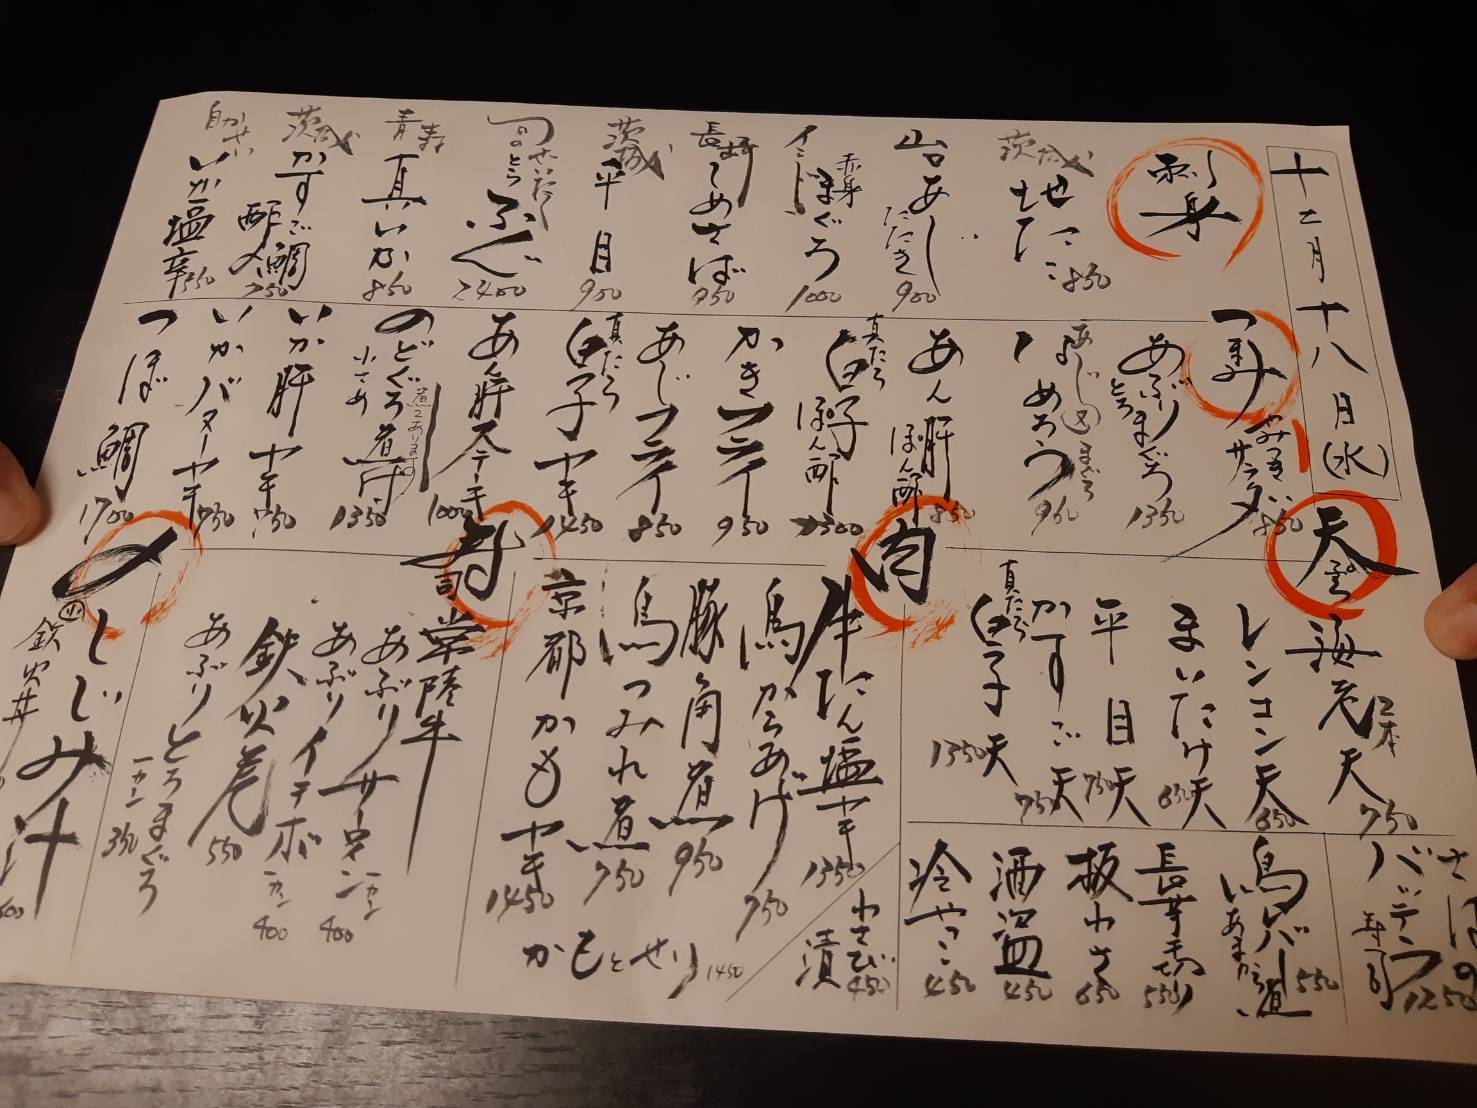 十二月十八日(水)
刺身
茨城 地だこ 850
山口 あじ たたき 900
インド 赤身 まぐろ 1000
長崎 しめさば 950
茨城 平目 900
ふぐ 2400
青森 真いか 850
茨城 かすご鯛 酢〆 750
自かせい いか塩辛 550
つまみ
サラダ 850
あぶりとろまぐろ 1350
あじ まぐろ なめろう 950
あん肝ぽん酢 850
真だら 白子ぽん酢 1300
かきフライ 950
あじフライ 850
真だら 白子ヤキ 1450
あん肝ステーキ 1000
のどぐろ煮付 小さめ 1350
煮てあります
いか肝ヤキ 750
いかバターヤキ 750
つぼ鯛 1700
天ぷら
海老天 2本 750
レンコン天 650
まいたけ天 650
平目天 750
かすご天 750
真だら 白子天 1350
さばの バッテラ 寿司 1250
鳥バー 550
長芋千切り 550
板わさ 650
酒盗 450
冷やっこ 450
肉
牛たん塩ヤキ 1350
鳥からあげ 750
豚角煮 950
鳥つみれ煮 750
京都かもヤキ 1450
かもとせり 1450
わさび漬 450
寿司
常陸牛
あぶりサーロイン 一カン 400
あぶりイチボ 一カン 400
鉄火巻 550
あぶりとろまぐろ 一カン 350
〆
しじみ汁
小 鉄火丼